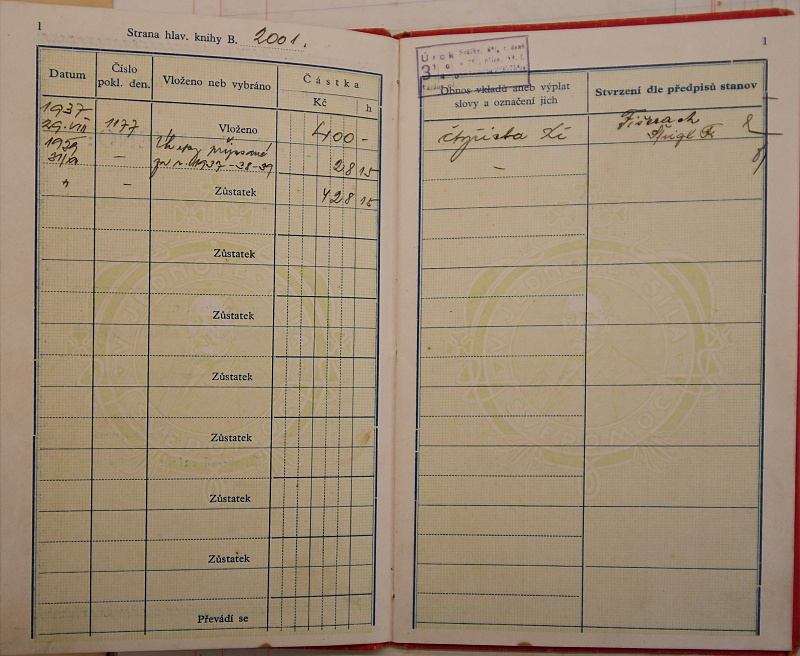 1
Strana hlav. knihy B. 2001.
Datum
Číslo pokl. den.
Vloženo neb vybráno
Částka
Kč h
1937
29.VII 1177 Vloženo 400 -
1939 Úroky připsané
31/XII - za r. 1937-38-39 28 15
" - Zůstatek 428 15
Zůstatek
Zůstatek
Zůstatek
Zůstatek
Zůstatek
Zůstatek
Převádí se
1
Úrok
3
Obnos vkladů aneb výplat
slovy a označení jich
Stvrzení dle předpisů stanov
čtyřista Kč
-
JEDNOTA SVĚPOMOC